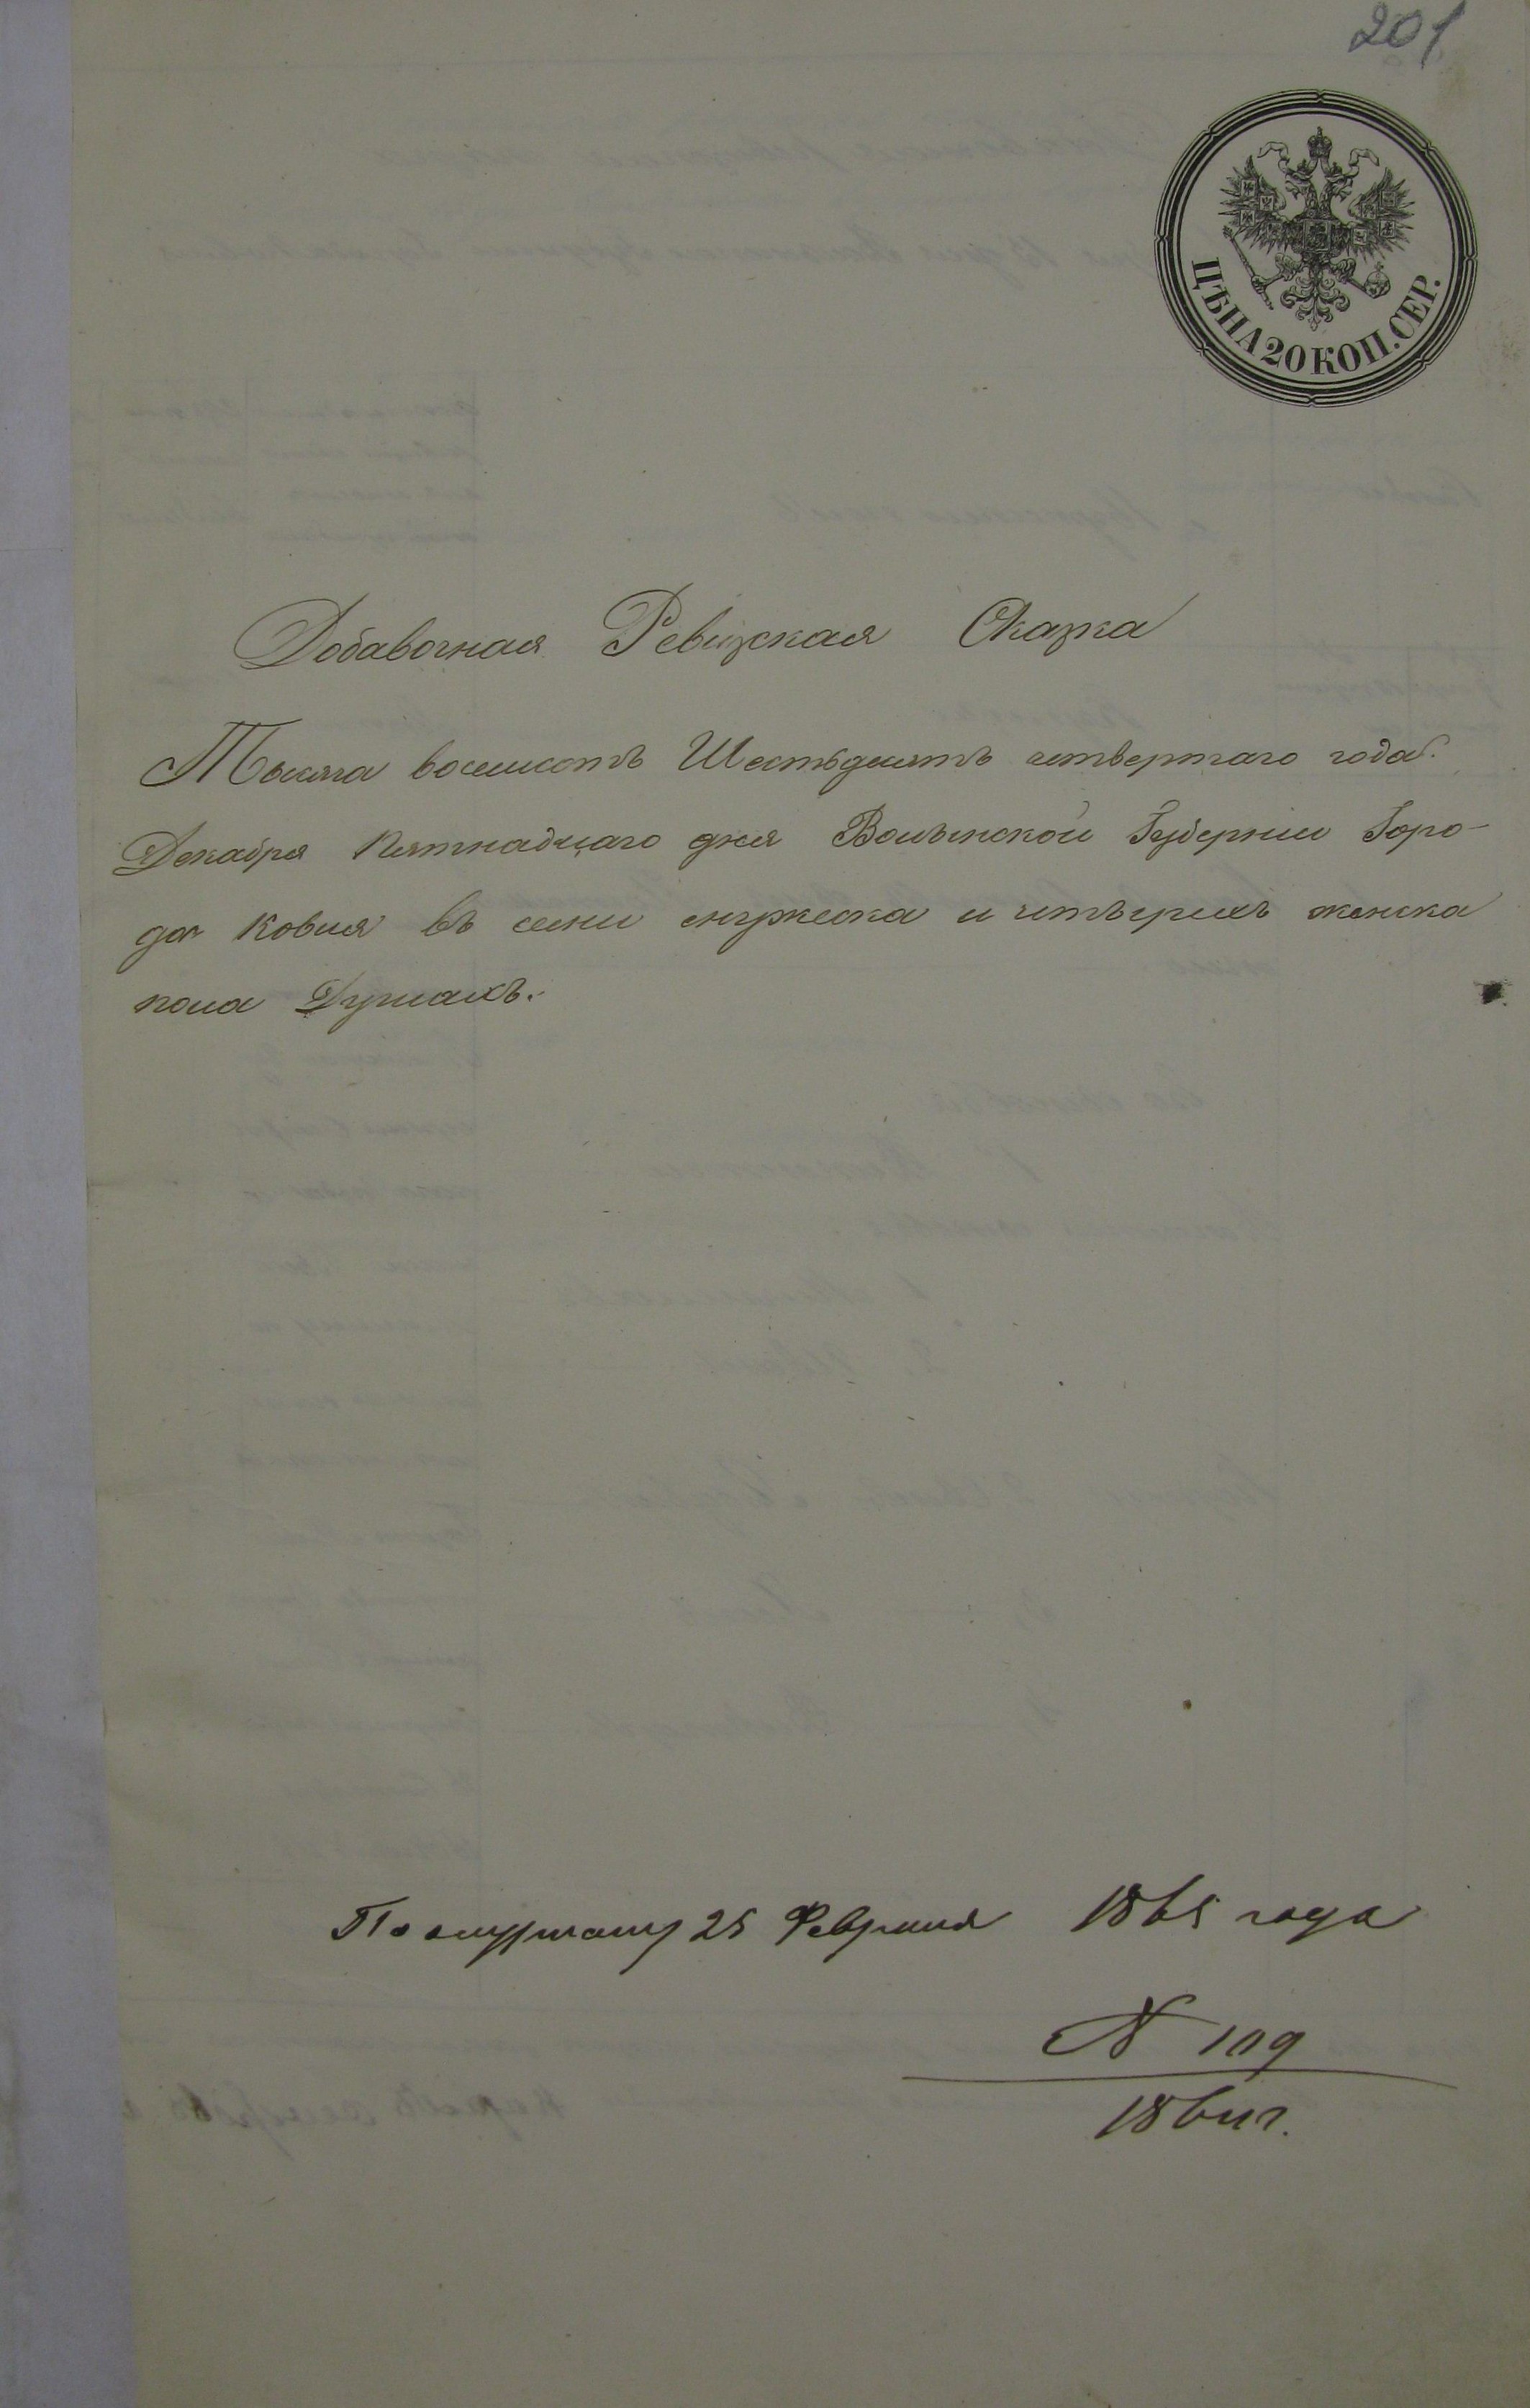 201
ЦѢНА 20 КОП. СЕР.
Добавочная Ревизская Сказка
Тысяча восемсотъ Шестьдесятъ четвертаго года.
Декабря Пятнадцаго дня Волынской Губерніи Горо-
да Ковля въ семи мужеска и четырехъ женска
пола Душахъ.
25 Февраля 1865 года
N 109